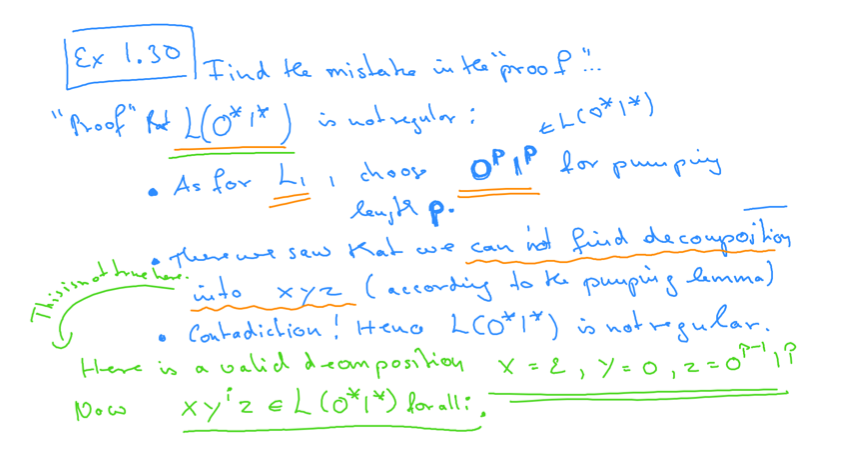 Ex 1.30 Find the mistake in the "proof"...
"Proof" that L(0*1*) is not regular: ∈ L(0*1*)
• As for L₁, choose 0ᵖ1ᵖ for pumping
length p.
• There we saw that we can not find decomposition
into xyz (according to the pumping lemma)
This is not true here.
• Contradiction! Hence L(0*1*) is not regular.
Here is a valid decomposition x = ε, y = 0, z = 0ᵖ⁻¹1ᵖ
Now xyⁱz ∈ L(0*1*) for all i.